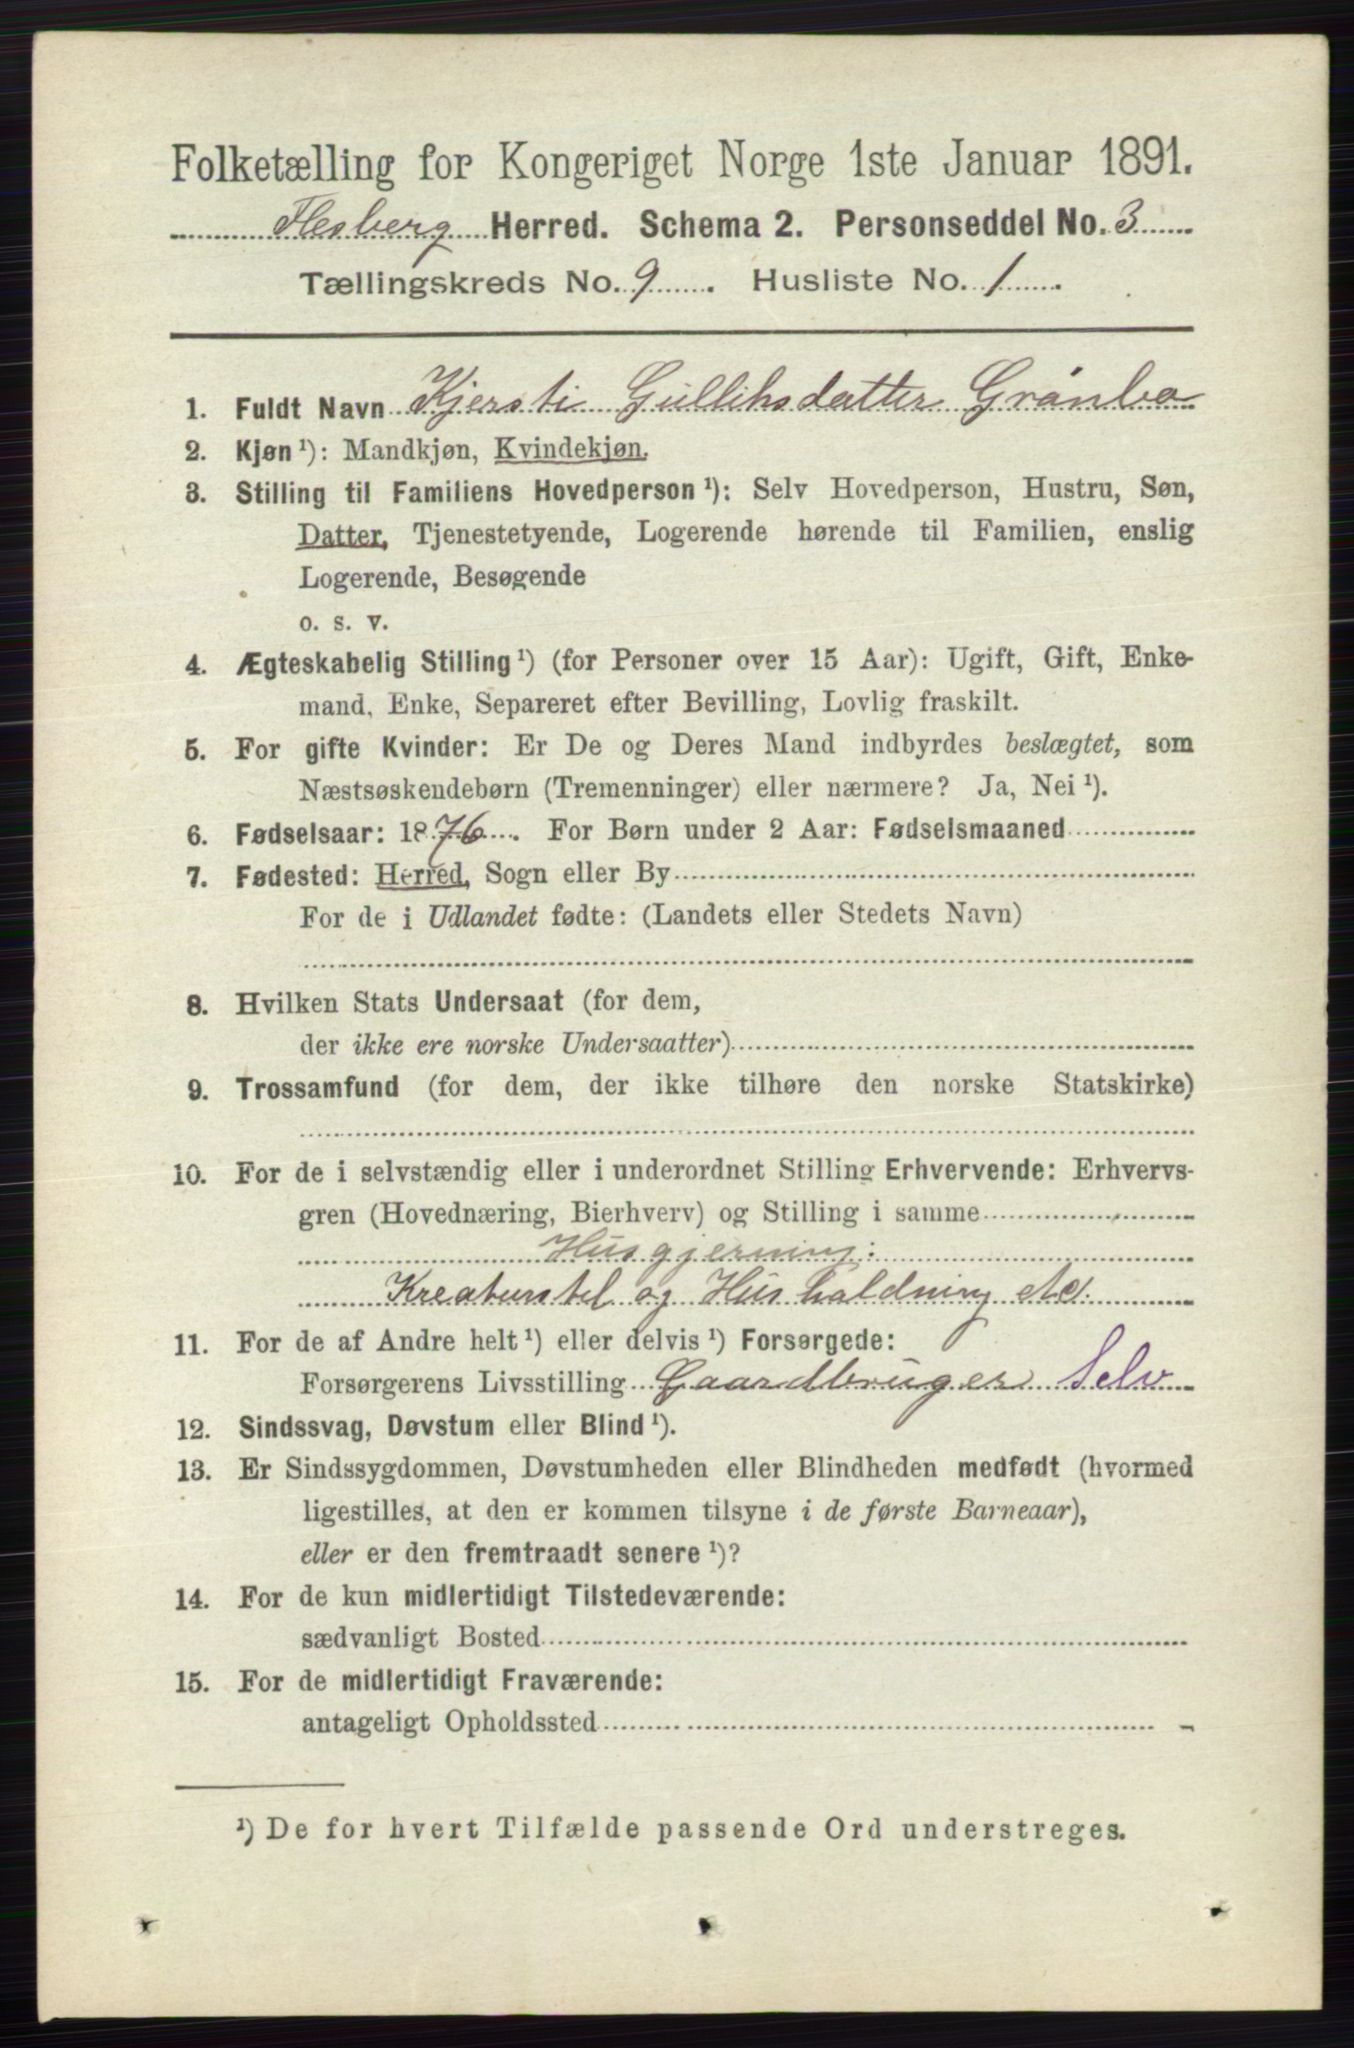 Folketælling for Kongeriget Norge 1ste Januar 1891.
Flesberg Herred. Schema 2. Personseddel No. 3
Tællingskreds No. 9. Husliste No. 1.
1. Fuldt Navn Kjersti Gulliksdatter Grønbo
2. Kjøn ¹): Mandkjøn, Kvindekjøn.
3. Stilling til Familiens Hovedperson ¹): Selv Hovedperson, Hustru, Søn,
Datter, Tjenestetyende, Logerende hørende til Familien, enslig
Logerende, Besøgende
o. s. v.
4. Ægteskabelig Stilling ¹) (for Personer over 15 Aar): Ugift, Gift, Enke-
mand, Enke, Separeret efter Bevilling, Lovlig fraskilt.
5. For gifte Kvinder: Er De og Deres Mand indbyrdes beslægtet, som
Næstsøskendebørn (Tremenninger) eller nærmere? Ja, Nei ¹).
6. Fødselsaar: 1876. For Børn under 2 Aar: Fødselsmaaned
7. Fødested: Herred, Sogn eller By
For de i Udlandet fødte: (Landets eller Stedets Navn)
8. Hvilken Stats Undersaat (for dem,
der ikke ere norske Undersaatter)
9. Trossamfund (for dem, der ikke tilhøre den norske Statskirke)
10. For de i selvstændig eller i underordnet Stilling Erhvervende: Erhvervs-
gren (Hovednæring, Bierhverv) og Stilling i samme
Husgjerning:
Kreaturstel og Husholdning etc.
11. For de af Andre helt ¹) eller delvis ¹) Forsørgede:
Forsørgerens Livsstilling Gaardbruger Selv
12. Sindssvag, Døvstum eller Blind ¹).
13. Er Sindssygdommen, Døvstumheden eller Blindheden medfødt (hvormed
ligestilles, at den er kommen tilsyne i de første Barneaar),
eller er den fremtraadt senere ¹)?
14. For de kun midlertidigt Tilstedeværende:
sædvanligt Bosted
15. For de midlertidigt Fraværende:
antageligt Opholdssted
¹) De for hvert Tilfælde passende Ord understreges.